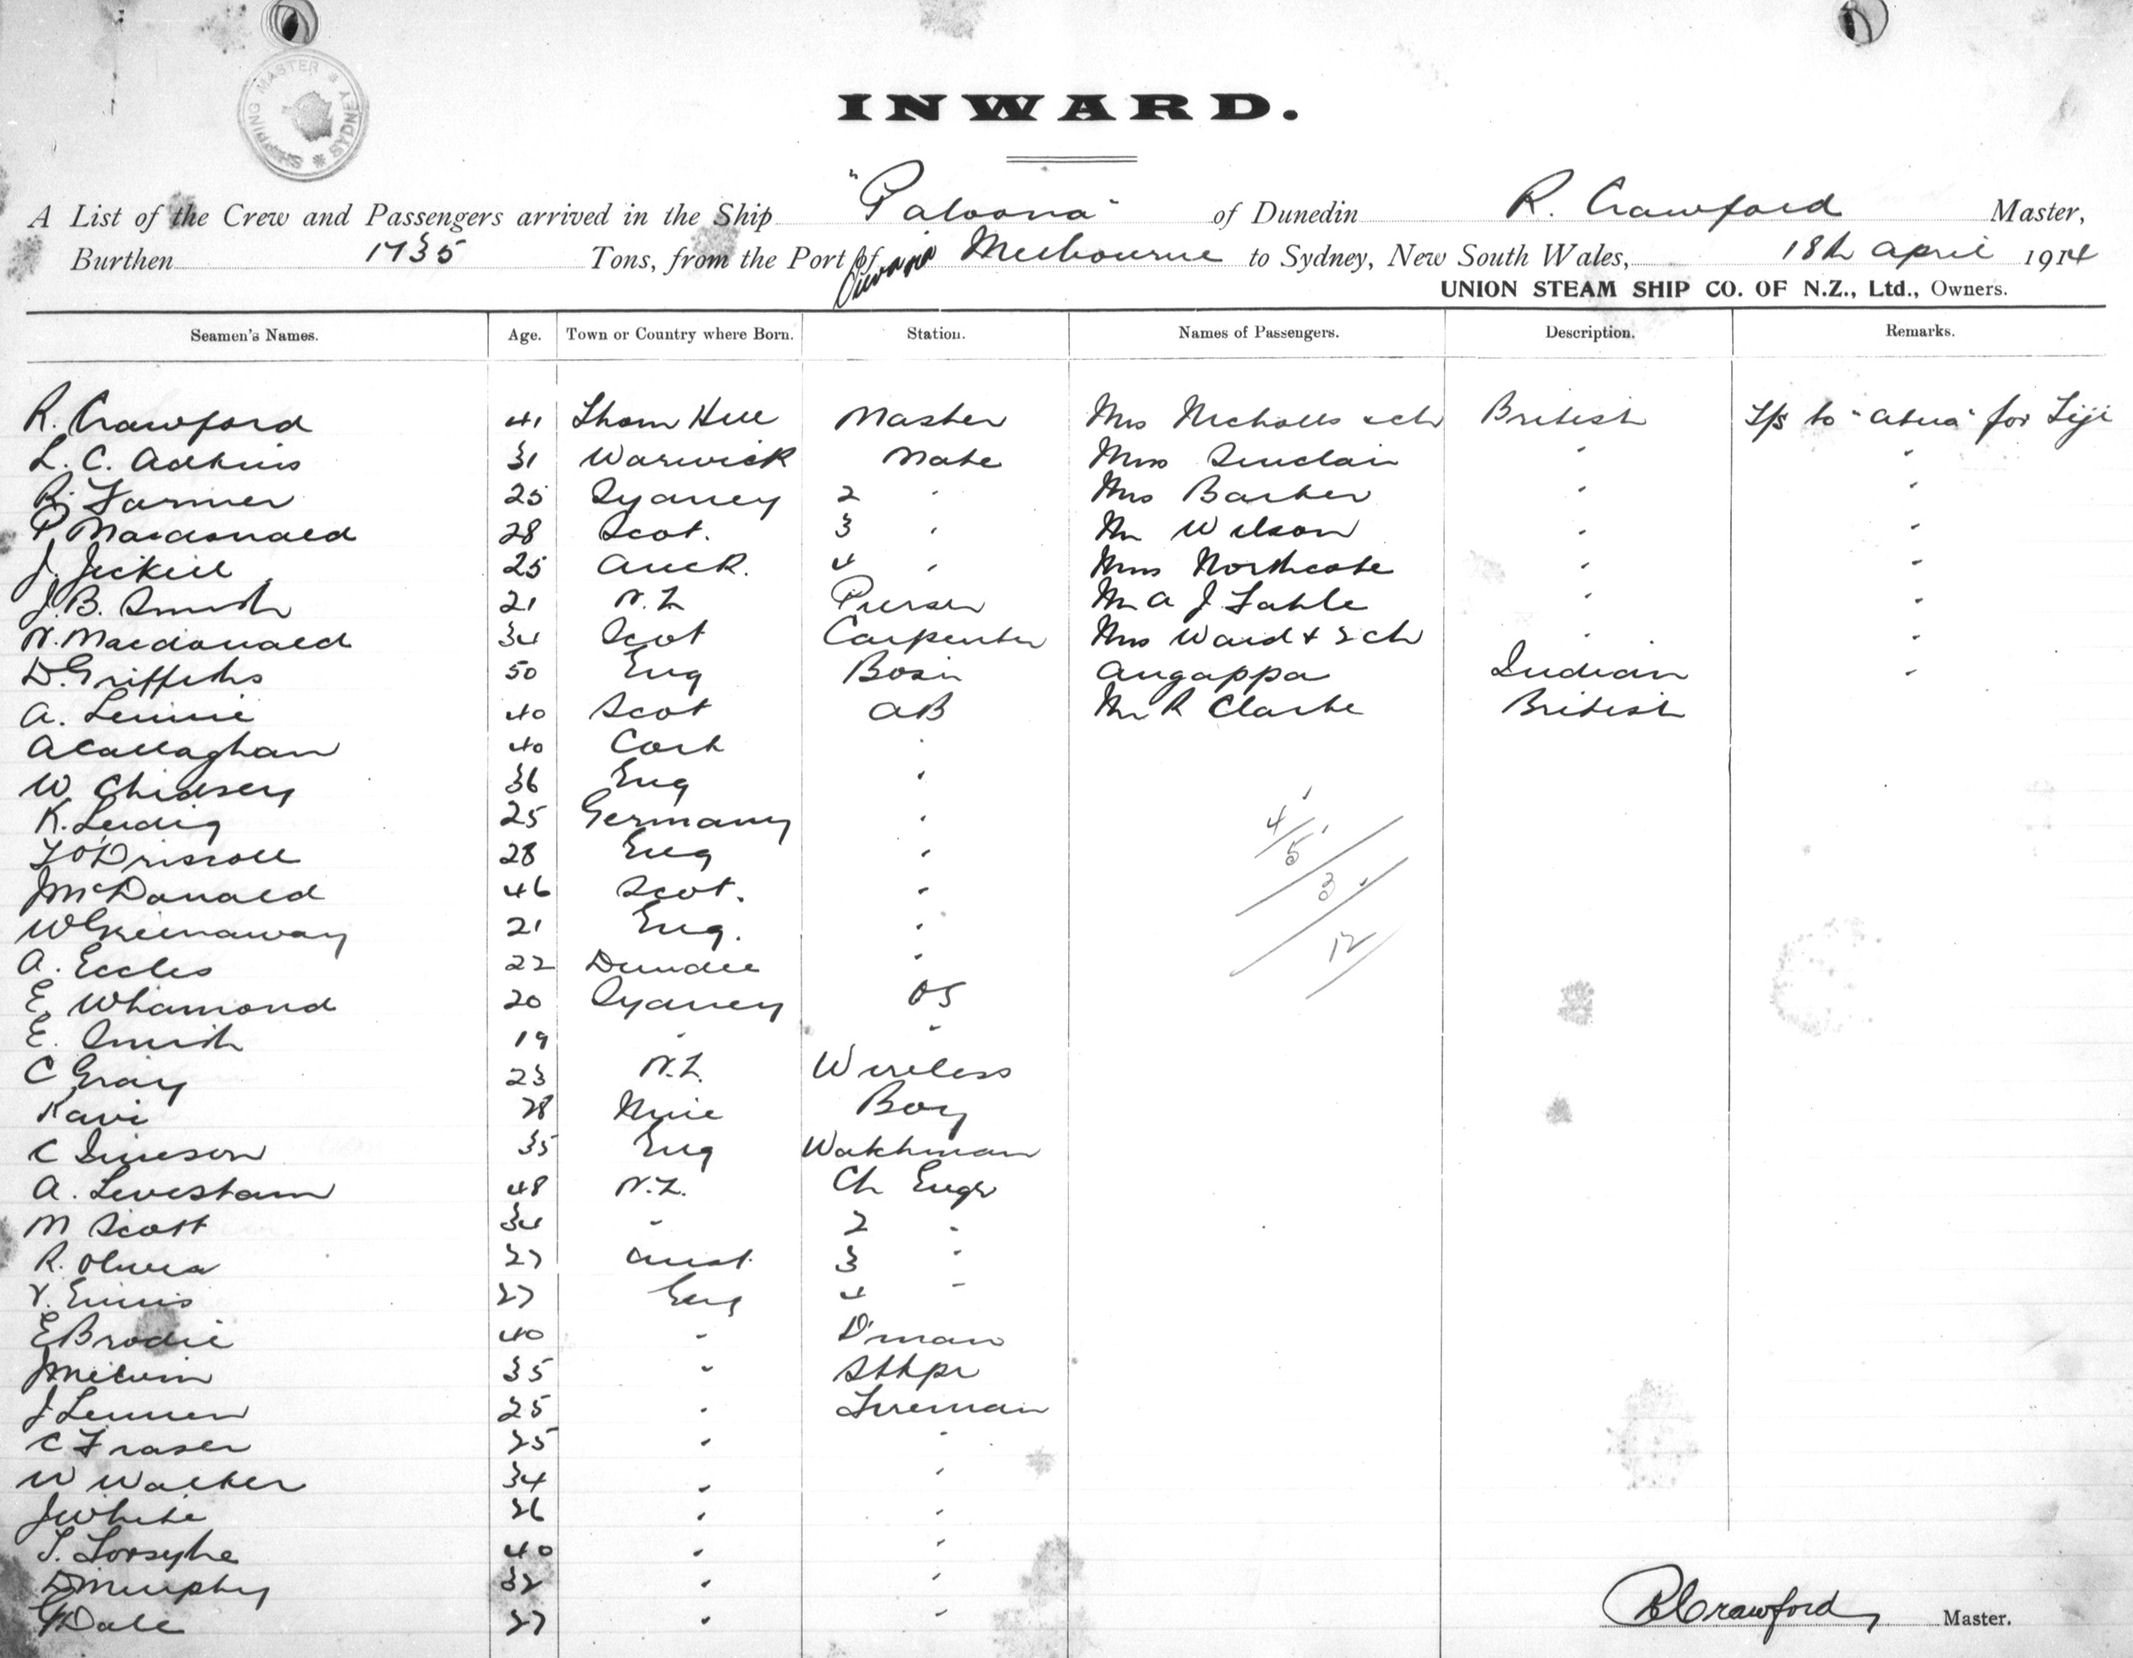 SHIPPING MASTER * SYDNEY *
INWARD.
A List of the Crew and Passengers arrived in the Ship "Paloona" of Dunedin R. Crawford Master,
Burthen 1735 Tons, from the Port of Melbourne to Sydney, New South Wales, 18th April 1914
UNION STEAM SHIP CO. OF N.Z., Ltd., Owners.
Seamen's Names. Age. Town or Country where Born. Station. Names of Passengers. Description. Remarks.
R. Crawford 41 Thorn Hill Master Mrs Nicholls & ch British T/s to "Atua" for Fiji
L. C. Adkins 31 Warwick Mate Miss Sinclair " "
R. Farmer 25 Sydney 2 " Mrs Barber " "
P. Macdonald 28 Scot. 3 " Mr Wilson " "
J. Jeckell 25 Auck. 4 " Miss Northcote " "
J. B. Smith 21 N.Z. Purser Mr A J Fahle " "
N. Macdonald 34 Scot Carpenter Mrs Ward & 2 ch " "
D. Griffiths 50 Eng Bosn Angappa Indian "
A. Lennie 40 Scot AB Mr R Clarke British
A Callaghan 40 Cork "
W. Chidsey 36 Eng "
K. Leidig 25 Germany "
T O'Driscoll 28 Eng "
J McDonald 46 Scot. "
W Greenaway 21 Eng. "
A. Eccles 22 Dundee "
E. Whamond 20 Sydney OS
E. Smith 19 " "
C Gray 23 N.Z. Wireless
Kavi 28 Niue Boy
C Imeson 35 Eng Watchman
A. Levestam 48 N.Z. Ch Engr
M Scott 34 " 2 "
R. 27 Aust. 3 "
V. Ennis 27 Eng 4 "
E Brodie 40 " D'man
J Melvin 35 " Stkpr
J Lennen 25 " Fireman
C Fraser 25 " "
W Walker 34 " "
J White 26 " "
T. Forsythe 40 " "
D Murphy 32 " "
G Dale 27 " "
4
5
3
12
R Crawford Master.